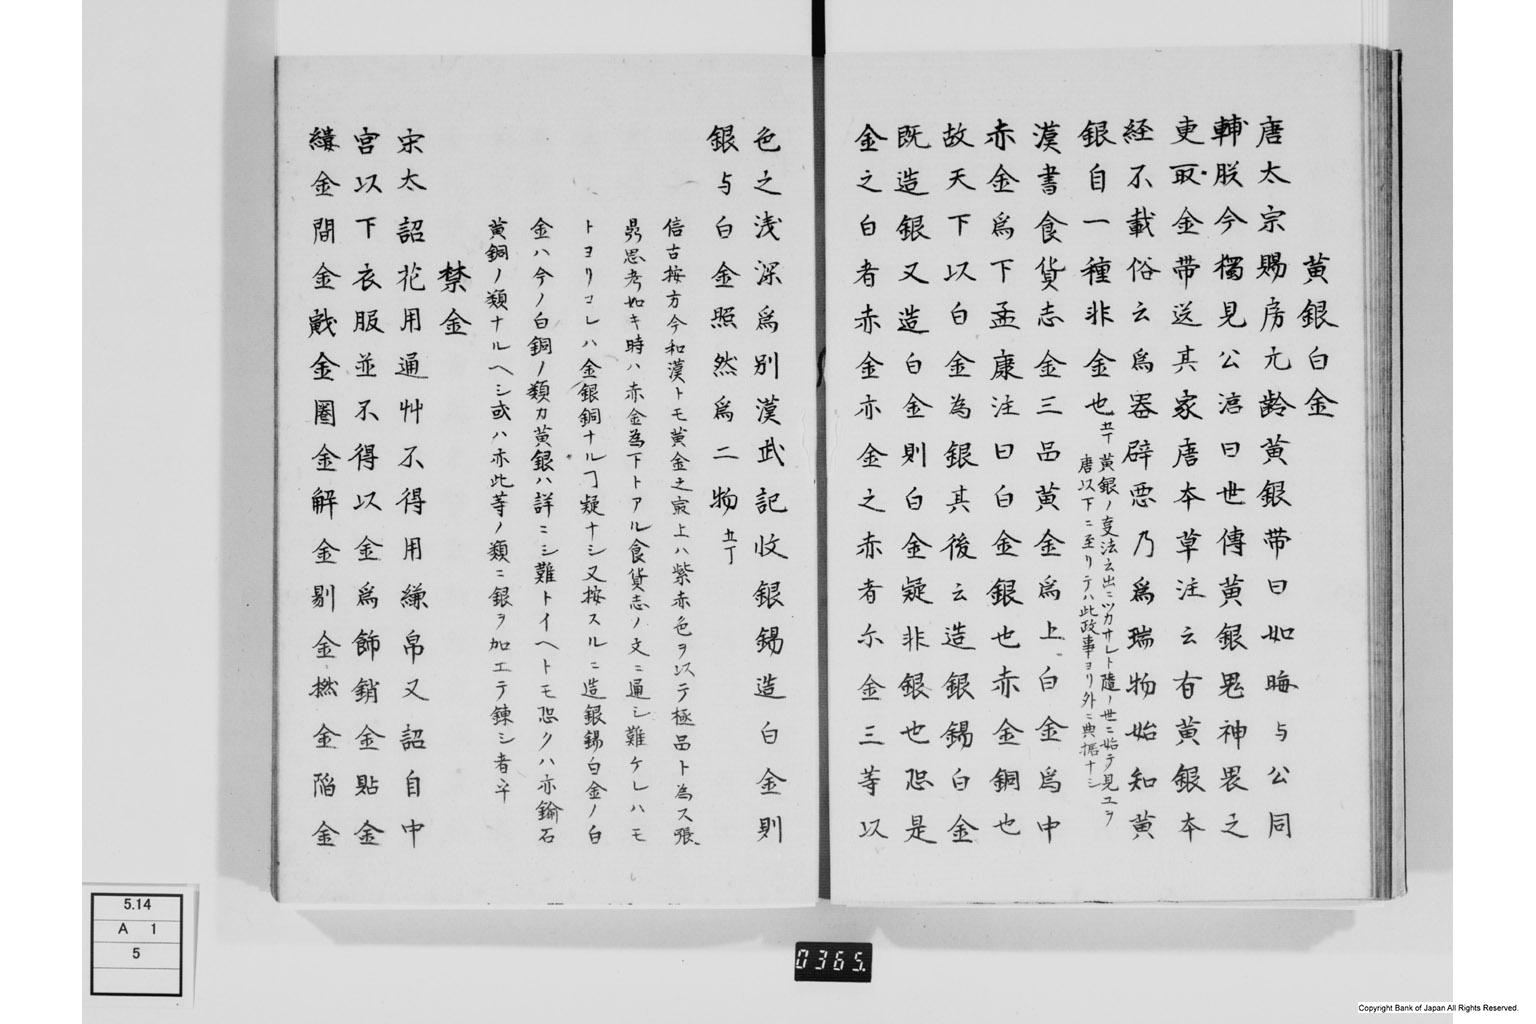 黄銀白金
唐太宗賜房元齡黄銀帯曰如晦与公同
輔朕今獨見公泫曰世傳黄銀鬼神畏之
更取金帯送其家唐本草注云有黄銀本
経不載俗云為器辟悪乃為瑞物始知黄
銀自一種非金也
黄銀ノ変法云出ニツカサレト隨ノ世ニ始テ見ユヲ
唐以下ニ至リテハ此政事ヨリ外ニ典拠ナシ
漢書食貨志金三品黄金為上白金為中
赤金為下孟康注曰白金銀也赤金銅也
故天下以白金為銀其後云造銀錫白金
既造銀又造白金則白金疑非銀也恐是
金之白者赤金亦金之赤者尓金三等以
色之浅深為別漢武記收銀錫造白金則
銀与白金照然為二物
信古按方今和漢トモ黄金之最上ハ紫赤色ヲ以テ極品ト為ス張
思考如キ時ハ赤金為下トアル食貨志ノ文ニ通シ難ケレハモ
トヨリコレハ金銀銅ナルヿ疑ナシ又按スルニ造銀錫白金ノ白
金ハ今ノ白銅ノ類カ黄銀ハ詳ニシ難トイヘトモ恐クハ亦鍮石
黄銅ノ類ナルヘシ或ハ亦此等ノ類ニ銀ヲ加エテ錬シ者乎
禁金
宋太詔花用通艸不得用縑帛又詔自中
宮以下衣服並不得以金為飾銷金貼金
縷金間金戭金圏金解金剔金撚金陥金
5.14
A 1
5
0365.
Copyright Bank of Japan All Rights Reserved.